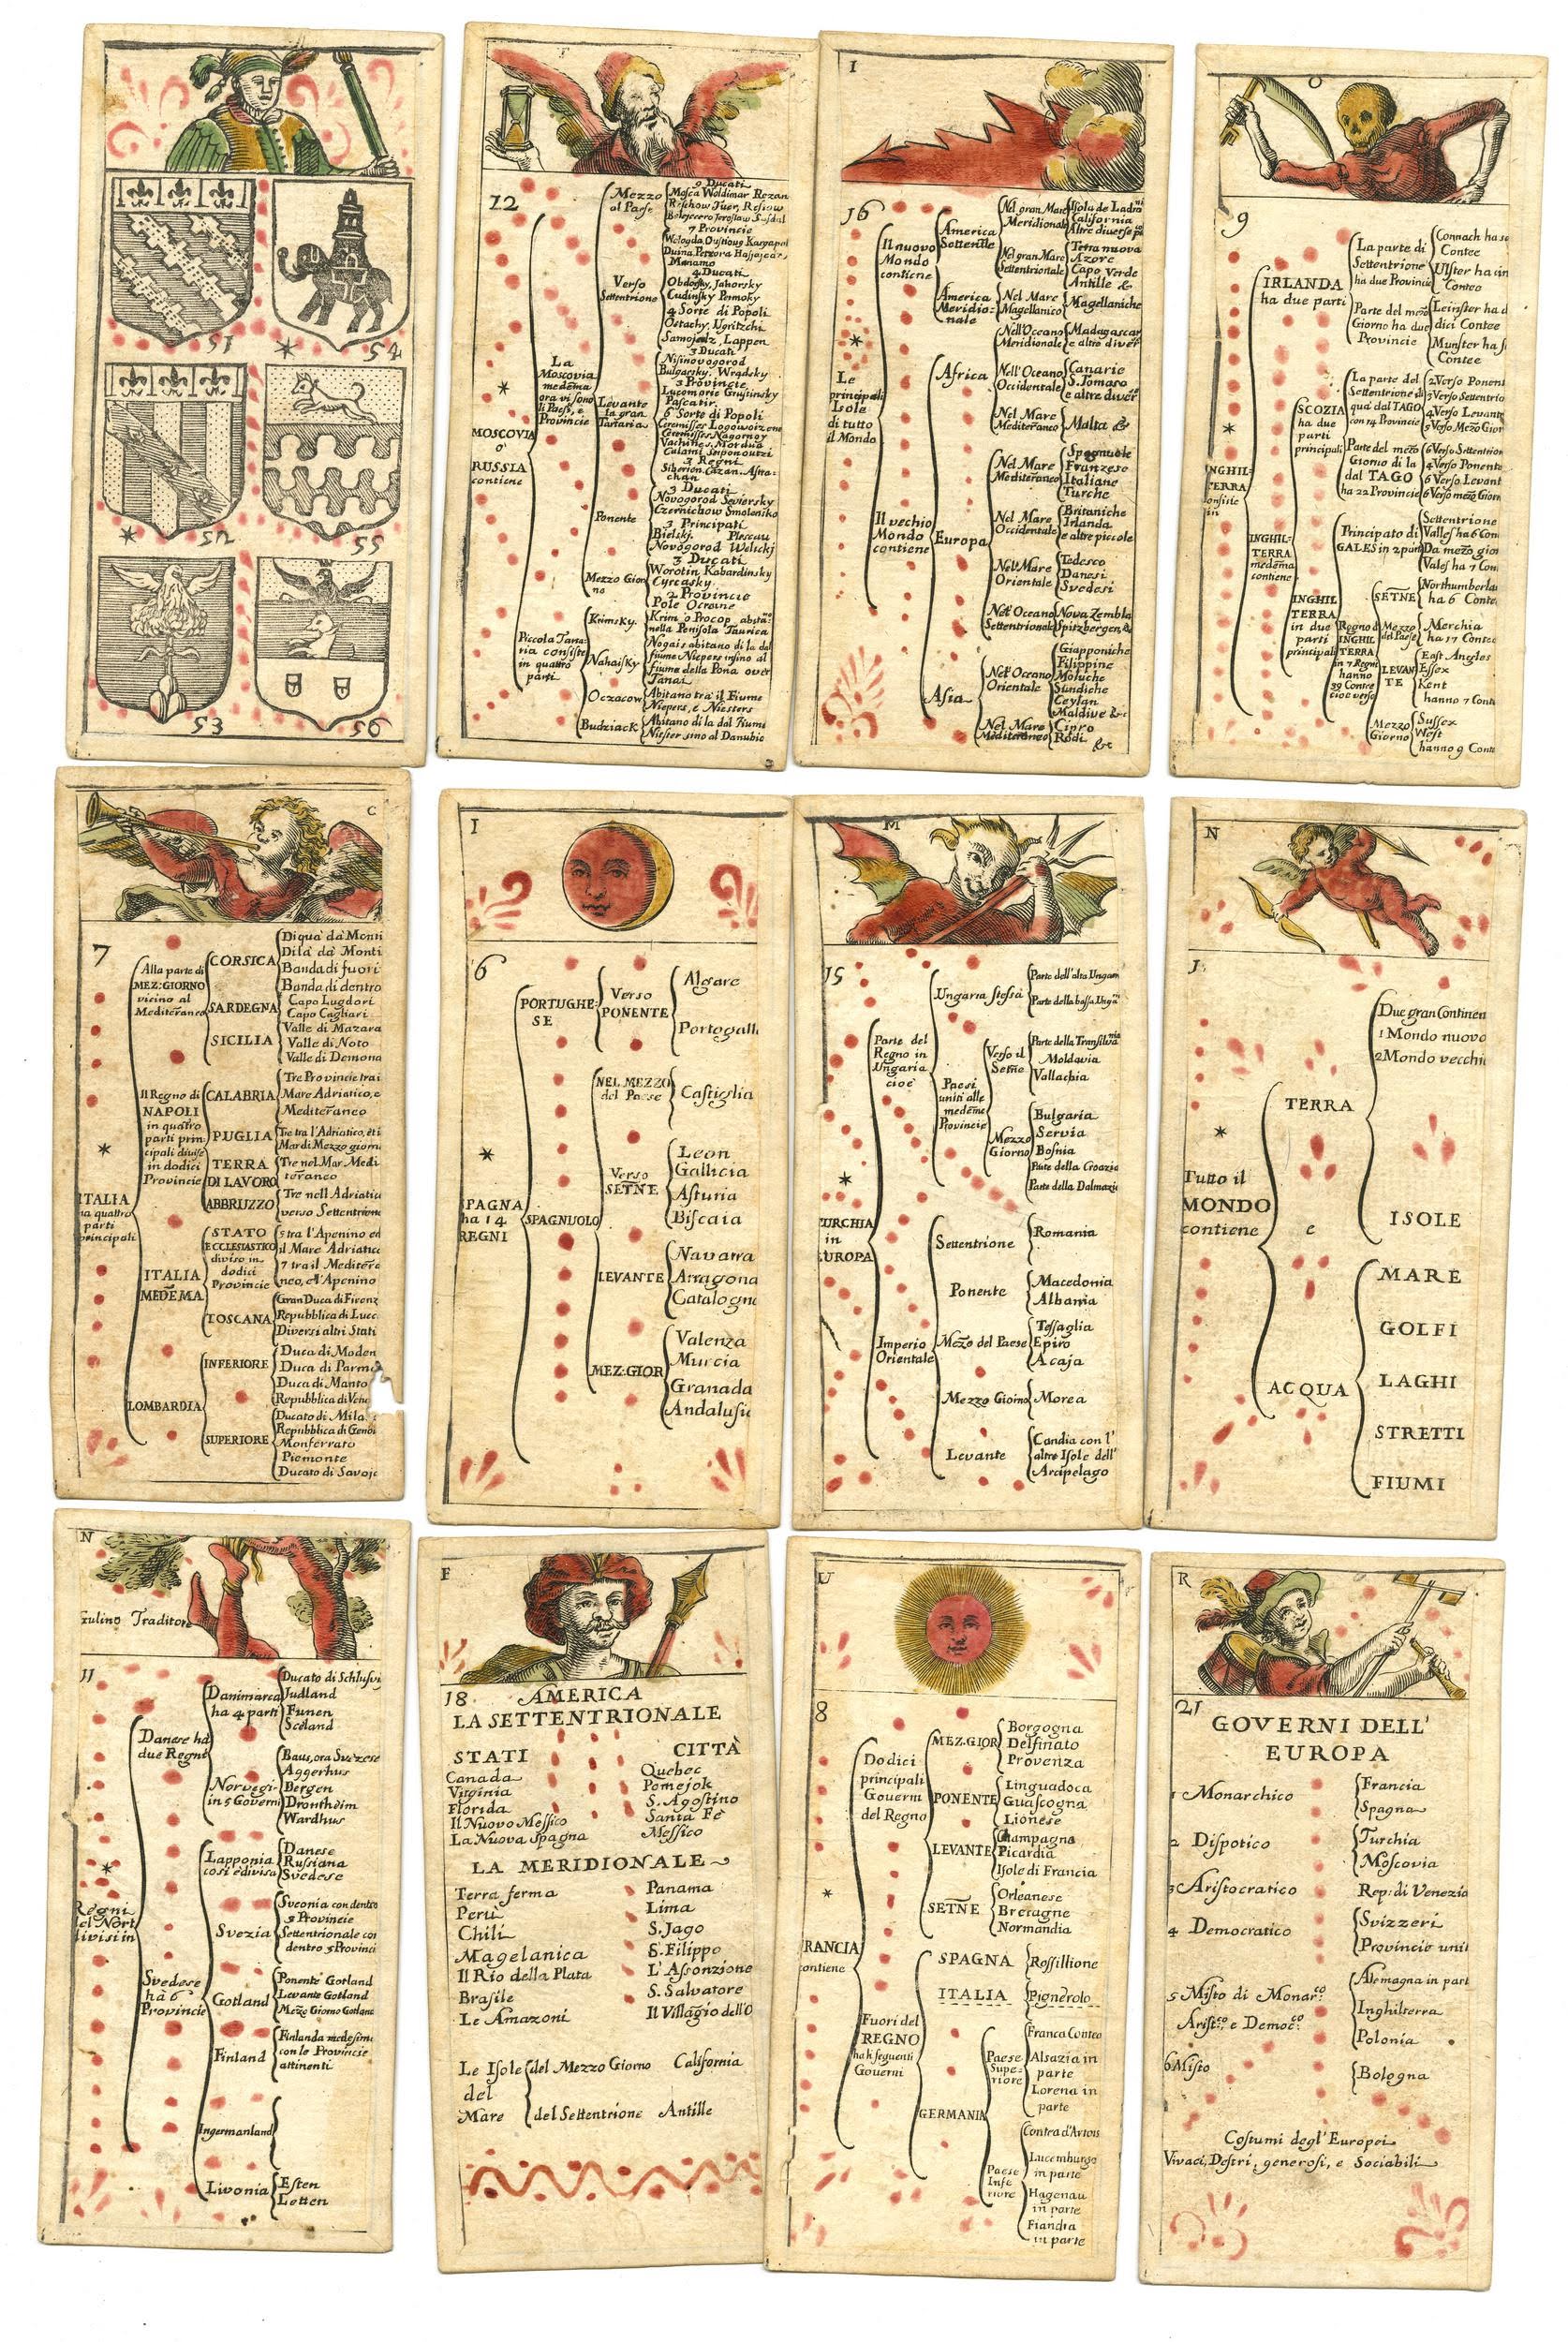 51
54
52
55
53
56
F
12
MOSCOVIA
o'
RUSSIA
contiene
La
Moscovia
medema
ora vi sono
li Paesi, e
Provincie
Mezzo
al Paese
9 Ducati
Mosca Woldimar Rezan
7 Provincie
Verso
Settentrione
4 Ducati
4 Sorte di Popoli
Samojedz, Lappen
Levante
la gran
Tartaria
3 Ducati
3 Provincie
6 Sorte di Popoli
3 Regni
Ponente
3 Ducati
3 Principati
Mezzo Gior
no
3 Ducati
2 Provincie
Pole Ocraine
Piccola Tana:
ria consiste
in quattro
parti
Krimsky
Krim o Procop abita:no
nella Penisola Taurica
Nahaisky
Nogais abitano di la dal
fiume Niepers insino al
fiume della Pona over
Tanai
Oczacow
Abitano tra il Fiume
Niepers, e Niesters
Budziack
Abitano di la dal Fium
Niester sino al Danubio
I
16
Le
principali
Isole
di tutto
il Mondo
Il nuovo
Mondo
contiene
America
Settentle
Nel gran Mare
Meridionale
Isola de Ladroni
California
Altre diverse
Nel gran Mare
Settentrionale
Terra nuova
Azore
Capo Verde
Antille &
America
Meridio:
nale
Nel Mare
Magellanico
Magellaniche
Il vechio
Mondo
contiene
Africa
Nell'Oceano
Meridionale
Madagascar
e altre diver
Nell'Oceano
Occidentale
Canarie
S. Tomaso
e altre diver
Nel Mare
Mediteraneo
Malta &
Europa
Nel Mare
Mediteraneo
Spagnuole
Franzese
Italiane
Turche
Nel Mare
Occidentale
Britaniche
Irlanda
e altre piccole
Nel Mare
Orientale
Tedesco
Danesi
Svedesi
Nel'Oceano
Settentrionale
Nova Zembla
Spitzbergen &
Asia
Nel'Oceano
Orientale
Giapponiche
Filippine
Moluche
Sundiche
Ceylan
Maldive &c
Nel Mare
Mediteraneo
Cipro
Rodi &c
O
9
INGHIL:
TERRA
onsiste
in
IRLANDA
ha due parti
La parte di
Settentrione
ha due Provincie
Connach ha se
Contee
Ulster ha in
Contee
Parte del mezo
Giorno ha due
Provincie
Leinster ha d
dici Contee
Munster ha s
Contee
INGHIL:
TERRA
medema
contiene
SCOZIA
ha due
parti
principali
La parte del
Settentrione di
qua dal TAGO
con 14 Provincie
2 Verso Ponent
3 Verso Settentrio
4 Verso Levante
5 Verso Mezo Gior
Parte del mezo
Giorno di la
dal TAGO
ha 22 Provincie
6 Verso Settentrion
4 Verso Ponente
6 Verso Levant
6 Verso mezo Giorn
INGHIL
TERRA
in due
parti
principali
Principato di
GALES in 2 parti
Settentrione
Valles ha 6 Con
Da mezo gior
Vales ha 7 Con
Regno d
INGHIL
TERRA
in 7 Regni
hanno
39 Contee
cioe verso
SETNE
Northumberla
ha 6 Conte
Mezzo
del Paese
Merchia
ha 17 Contee
LEVAN
TE
East Angles
Essex
Kent
hanno 7 Conte
Mezzo
Giorno
Sussex
West
hanno 9 Conte
C
7
ITALIA
ha quattro
parti
principali
Alla parte di
MEZ:GIORNO
vicino al
Mediteraneo
CORSICA
Di quà dà Monti
Di là dà Monti
Banda di fuori
Banda di dentro
SARDEGNA
Capo Lugdori
Capo Cagliari
SICILIA
Valle di Mazara
Valle di Noto
Valle di Demona
Il Regno di
NAPOLI
in quattro
parti prin:
cipali divise
in dodici
Provincie
CALABRIA
Tre Provincie trai
Mare Adriatico, e
Mediteraneo
PUGLIA
Tre tra l'Adriatico, et i
Mar di Mezzo giorn
TERRA
DI LAVORO
Tre nel Mar Medi
teraneo
ABBRUZZO
Tre nell Adriatic
verso Settentrion
ITALIA
MEDEMA
STATO
ECCLESIASTICO
diviso in
dodici
Provincie
5 tra l'Apenino ed
il Mare Adriatico
7 tra il Mediterr
neo, e l'Apenino
TOSCANA
Gran Duca di Firenz
Repubblica di Lucc
Diversi altri Stati
LOMBARDIA
INFERIORE
Duca di Moden
Duca di Parma
Duca di Manto
Repubblica di Vene
SUPERIORE
Ducato di Mila
Repubblica di Genoa
Monferrato
Piemonte
Ducato di Savoje
I
6
SPAGNA
ha 14
REGNI
PORTUGHE:
SE
Verso
PONENTE
Algarve
Portogall
SPAGNUOLO
NEL MEZZO
del Paese
Castiglia
Verso
SETNE
Leon
Gallicia
Asturia
Biscaia
LEVANTE
Navarra
Arragona
Catalogna
MEZ:GIOR
Valenza
Murcia
Granada
Andalusi
M
15
TURCHIA
in
EUROPA
Parte del
Regno in
Ungaria
cioè
Ungaria stessa
Parte dell'alta Ungar
Parte della bassa Unga
Paesi
uniti alle
medeme
Provincie
Verso il
Setne
Parte della Transilvania
Moldavia
Vallachia
Mezzo
Giorno
Bulgaria
Servia
Bosnia
Parte della Croazia
Parte della Dalmazia
Imperio
Orientale
Settentrione
Romania
Ponente
Macedonia
Albania
Mezo del Paese
Tessaglia
Epiro
Acaja
Mezzo Giorno
Morea
Levante
Candia con l'
altre Isole dell'
Arcipelago
N
1
Tutto il
MONDO
contiene
TERRA
Due gran Continen
1 Mondo nuovo
2 Mondo vecchio
ISOLE
e
ACQUA
MARE
GOLFI
LAGHI
STRETTI
FIUMI
N
Gulino Traditore
11
Regni
del Nort
divisi in
Danese hà
due Regni
Danimarca
ha 4 parti
Ducato di Schlusvi
Judland
Funen
Sceland
Norvegi
in 5 Governi
Baus, ora Svezese
Aggerhus
Bergen
Drontheim
Wardhus
Svedese
hà 6
Provincie
Lapponia
cosi è divisa
Danese
Russiana
Svedese
Svezia
Sveonia con dentro
5 Provincie
Settentrionale con
dentro 5 Provinci
Gotland
Ponente Gotland
Levante Gotland
Meze Giorno Gotland
Finland
Finlanda medesim
con le Provincie
attinenti
Ingermanland
Livonia
Esten
Letten
F
18
AMERICA
LA SETTENTRIONALE
STATI CITTÀ
Canada Quebec
Virginia Pomejok
Florida S. Agostino
Il Nuovo Messico Santa Fè
La Nuova Spagna Messico
LA MERIDIONALE
Terra ferma Panama
Perù Lima
Chili S. Jago
Magelanica S. Filippo
Il Rio della Plata L'Assonzione
Brasile S. Salvatore
Le Amazoni Il Villagio dell'O
Le Isole del Mezzo Giorno California
del
Mare del Settentrione Antille
U
8
FRANCIA
contiene
Dodici
principali
Governi
del Regno
MEZ:GIOR
Borgogna
Delfinato
Provenza
PONENTE
Linguadoca
Guascogna
Lionese
LEVANTE
Champagna
Picardia
Isole di Francia
SETNE
Orleanese
Bretagne
Normandia
Fuori del
REGNO
ha li seguenti
Governi
SPAGNA
Rossillione
ITALIA
Pignerolo
GERMANIA
Paese
Supe:
riore
Franca Contea
Alsazia in
parte
Lorena in
parte
Paese
Infe
riore
Contea d'Artois
Lucemburgo
in parte
Hagenau
in parte
Fiandra
in parte
R
21
GOVERNI DELL'
EUROPA
1 Monarchico
Francia
Spagna
2 Dispotico
Turchia
Moscovia
3 Aristocratico
Rep: di Venezia
4 Democratico
Svizzeri
Provincie unit
5 Misto di Monarco:
Aristco: e Democo:
Alemagna in part
Inghilterra
Polonia
6 Misto
Bologna
Costumi degl'Europei
Vivaci, Destri, generosi, e Sociabili